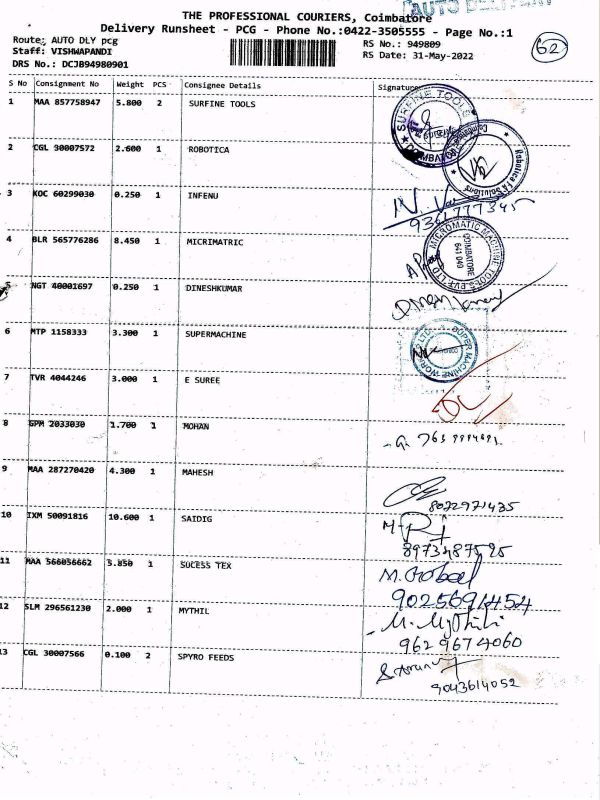 AUTO DELIVERY
THE PROFESSIONAL COURIERS, Coimbatore
Delivery Runsheet - PCG - Phone No.:0422-3505555 - Page No.:1
Route: AUTO DLY pcg
RS No.: 949809
62
Staff: VISHWAPANDI
RS Date: 31-May-2022
DRS No.: DCJB94980901
S No Consignment No Weight PCS Consignee Details Signature
1 MAA 857758947 5.800 2 SURFINE TOOLS
SURFINE TOOLS
2 CGL 30007572 2.600 1 ROBOTICA
Robotica FA Solutions
3 KOC 60299030 0.250 1 INFENU
4 BLR 565776286 8.450 1 MICRIMATRIC
MICROMATIC MACHINE TOOLS PVT LTD
COIMBATORE
641 049
5 NGT 40001697 0.250 1 DINESHKUMAR
6 MTP 1158333 3.300 1 SUPERMACHINE
SUPER MACHINE WORKS
7 TVR 4044246 3.000 1 E SUREE
8 GPM 2033030 1.700 1 MOHAN
9 MAA 287270420 4.300 1 MAHESH
10 IXM 50091816 10.600 1 SAIDIG
8973487595
11 MAA 566056662 3.850 1 SUCESS TEX
12 SLM 296561230 2.000 1 MYTHIL
M. Mythili
9629674060
13 CGL 30007566 0.100 2 SPYRO FEEDS
9043614052